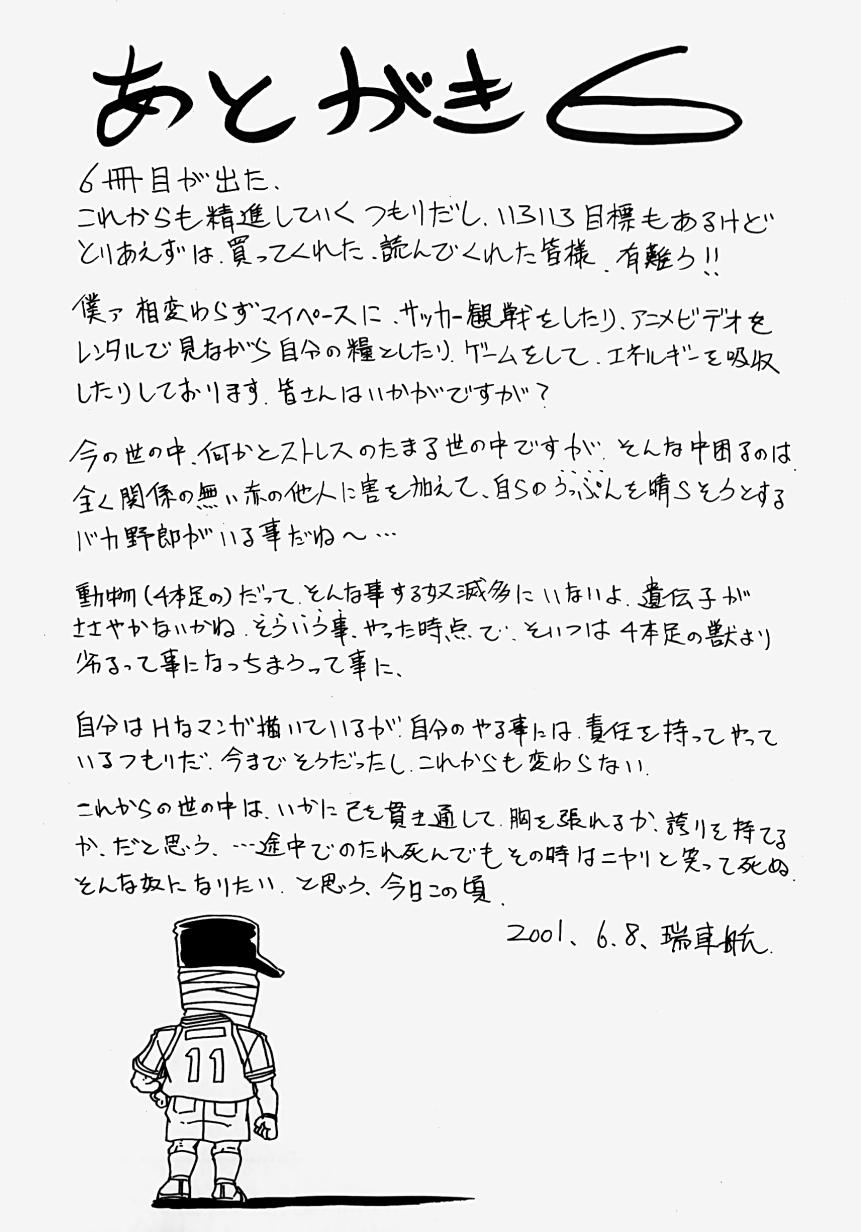 あとがき6
6冊目が出た、
これからも精進していくつもりだし、いろいろ目標もあるけど
とりあえずは、買ってくれた、読んでくれた皆様、有難う!!
僕ァ相変わらずマイペースに、サッカー観戦をしたり、アニメビデオを
レンタルで見ながら自分の糧としたり、ゲームをして、エネルギーを吸収
したりしております。皆さんはいかがですが?
今の世の中、何かとストレスのたまる世の中ですが、そんな中困るのは、
全く関係の無い赤の他人に害を加えて、自らのうっぷんを晴らそうとする
バカ野郎がいる事だね〜…
動物(4本足の)だって、そんな事する奴滅多にいないよ、遺伝子が
ささやかないかね、そういう事、やった時点で、そいつは4本足の獣より
劣るって事になっちまうって事に、
自分はHなマンガ描いているが、自分のやる事には、責任を持ってやって
いるつもりだ、今までそうだったし、これからも変わらない、
これからの世の中は、いかに己を貫き通して、胸を張れるか、誇りを持てる
か、だと思う、…途中でのたれ死んでもその時はニヤリと笑って死ぬ、
そんな奴になりたい、と思う、今日この頃、
2001、6.8、瑞車航、
11